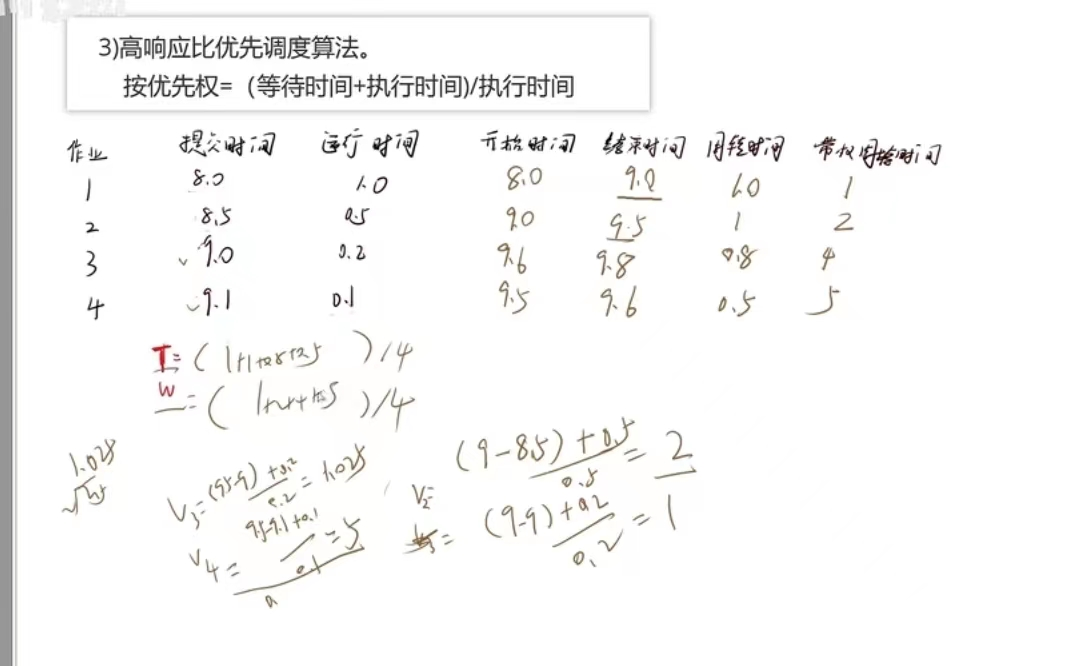 3)高响应比优先调度算法。
按优先权=（等待时间+执行时间)/执行时间
作业 提交时间 运行时间 开始时间 结束时间 周转时间 带权周转时间
1 8.0 1.0 8.0 9.0 1.0 1
2 8.5 0.5 9.0 9.5 1 2
3 9.0 0.2 9.6 9.8 0.8 4
4 9.1 0.1 9.5 9.6 0.5 5
T=(1+1+0.8+0.5)/4
W=(1+2+4+5)/4
(9-8.5)+0.5
V2= 0.5 =2
(9-9)+0.2
= 0.2 =1
1.025
V3=(9.5-9)+0.2
0.2 =1.025
9.5-9.1+0.1
V4= 0.1 =5